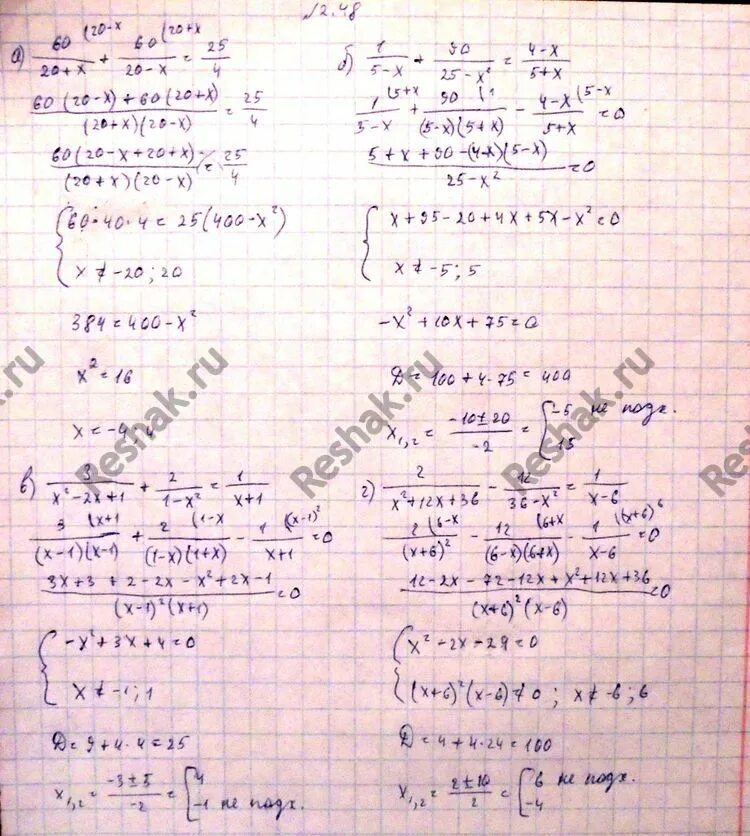 №2.48
а) 60 (20-x / 20+x + 60 (20+x / 20-x = 25/4
60(20-x)+60(20+x) / (20+x)(20-x) = 25/4
60(20-x+20+x) / (20+x)(20-x) = 25/4
{ 60·40·4 = 25(400-x²)
x ≠ -20; 20
384 = 400-x²
x² = 16
x = -4; 4
б) 1/5-x + 90/25-x² = 4-x/5+x
1 (5+x / 5-x + 90 (1 / (5-x)(5+x) - 4-x (5-x / 5+x = 0
5+x+90-(4-x)(5-x) / 25-x² = 0
{ x+95-20+4x+5x-x² = 0
x ≠ -5; 5
-x²+10x+75=0
D = 100+4·75 = 400
x₁,₂ = -10±20 / -2 = { -5 не подх.
15
в) 3/x²-2x+1 + 2/1-x² = 1/x+1
3 (x+1 / (x-1)(x-1) + 2 (1-x / (1-x)(1+x) - 1 ((x-1)² / x+1 = 0
3x+3+2-2x-x²+2x-1 / (x-1)²(x+1) = 0
{ -x²+3x+4=0
x ≠ -1; 1
D = 9+4·4 = 25
x₁,₂ = -3±5 / -2 = { 4
-1 не подх.
г) 2/x²+12x+36 - 12/36-x² = 1/x-6
2 (6-x / (x+6)² - 12 (6+x / (6-x)(6+x) - 1 ((x+6)² / x-6 = 0
12-2x-72-12x+x²+12x+36 / (x+6)²(x-6) = 0
{ x²-2x-29=0
(x+6)²(x-6) ≠ 0; x ≠ -6; 6
D = 4+4·24 = 100
x₁,₂ = 2±10 / 2 = { 6 не подх.
-4
Reshak.ru
Reshak.ru
Reshak.ru